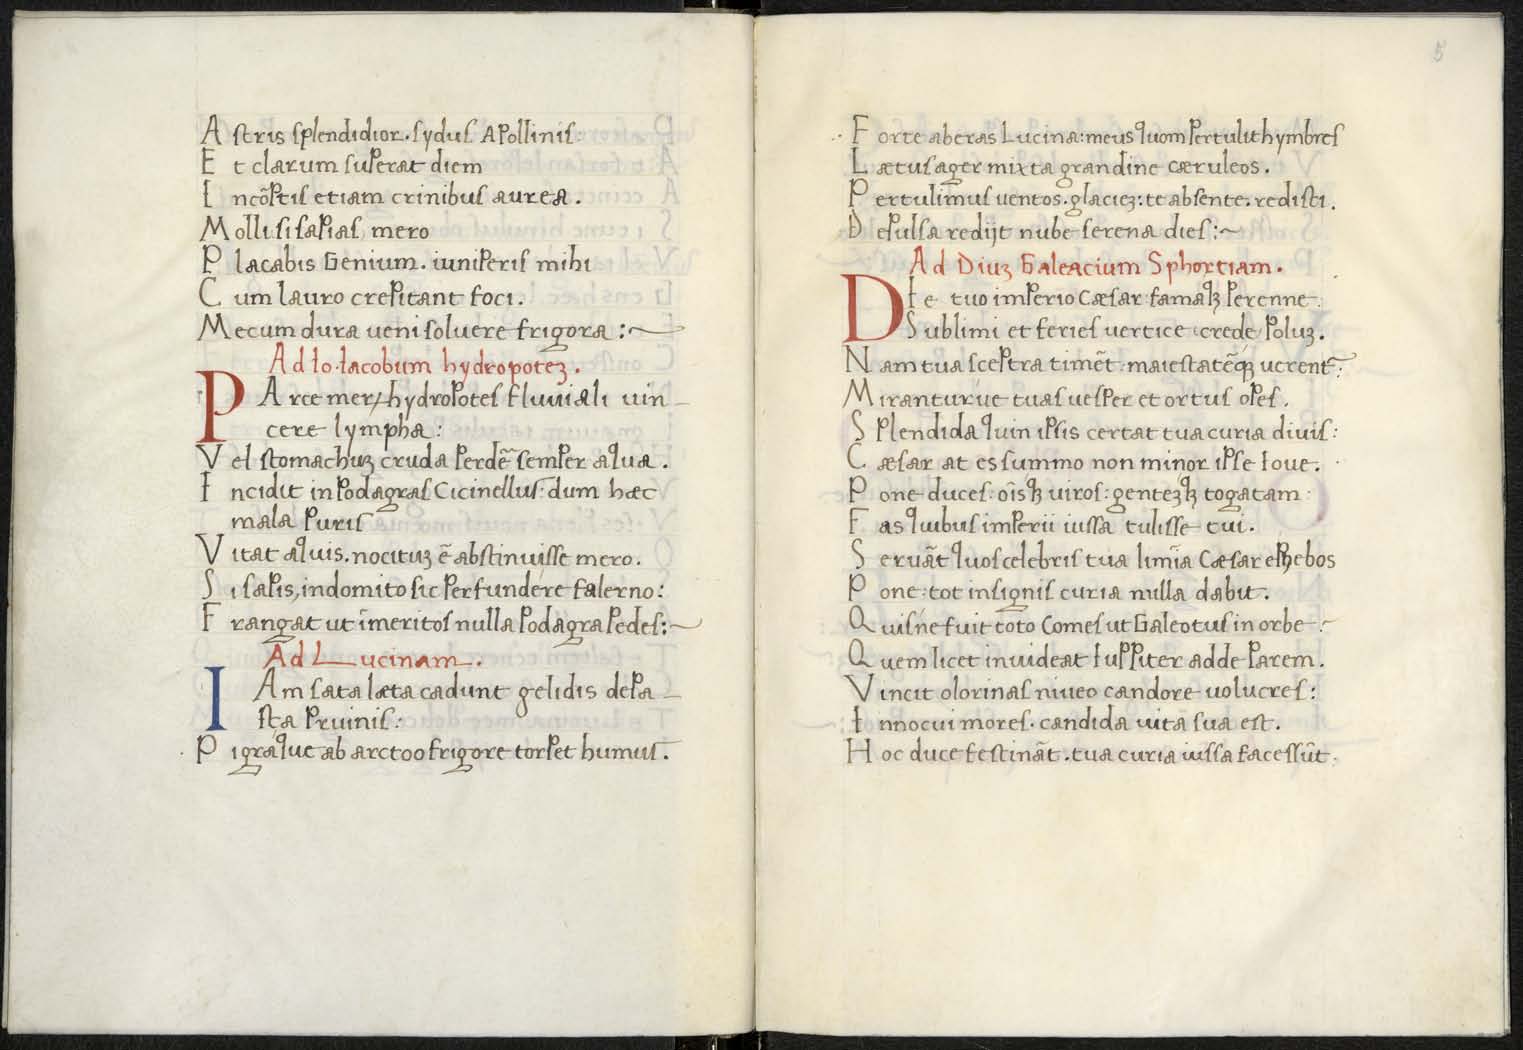 Astris splendidior. sydus Apollinis:
Et clarum superat diem
Incōptis etiam crinibus aurea.
Mollis si sapias, mero
Placabis Genium. iuniperis mihi
Cum lauro crepitant foci.
Mecum dura veni solvere frigora:~
Ad Io. Iacobum hydropoteʒ.
PArce mer, hydropotes fluviali vin-
cere lympha:
Vel stomachuʒ cruda perdē semper aqua.
Incidit in podagras Cicinellus: dum hæc
mala puris
Vitat aquis. nocituʒ ē abstinuisse mero.
Si sapis, indomito sic perfundere falerno:
Frangat ut īmeritos nulla podagra pedes:~
Ad Lucinam.
IAm sata læta cadunt gelidis depa-
sta pruinis:
Pigráque ab arctoo frigore torpet humus.
5
Forte aberas Lucina: meus quom pertulit hymbres
Lætus ager mixta grandine cæruleos.
Pertulimus ventos. glacieʒ: te absente. redisti.
Depulsa redijt nube serena dies:~
Ad Divʒ Galeacium Sphortiam.
DIte tuo imperio Cæsar famaqʒ perenne:
Sublimi et feries vertice crede poluʒ.
Nam tua sceptra timēt: maiestatēqʒ verent̄:
Miranturúe tuas vesper et ortus opes.
Splendida quin ipsis certat tua curia divis:
Cæsar at es summo non minor ipse Iove.
Pone duces: oīsqʒ viros: genteʒqʒ togatam:
Fas quibus imperii iussa tulisse tui.
Servāt quos celebris tua limīa Cæsar ephebos
Pone: tot insignis curia nulla dabit.
Quisńe fuit toto Comes ut Galeotus in orbe:
Quem licet invideat Iuppiter adde parem.
Vincit olorinas niveo candore volucres:
Innocui mores. candida vita sua est.
Hoc duce festināt. tua curia iussa facessūt: